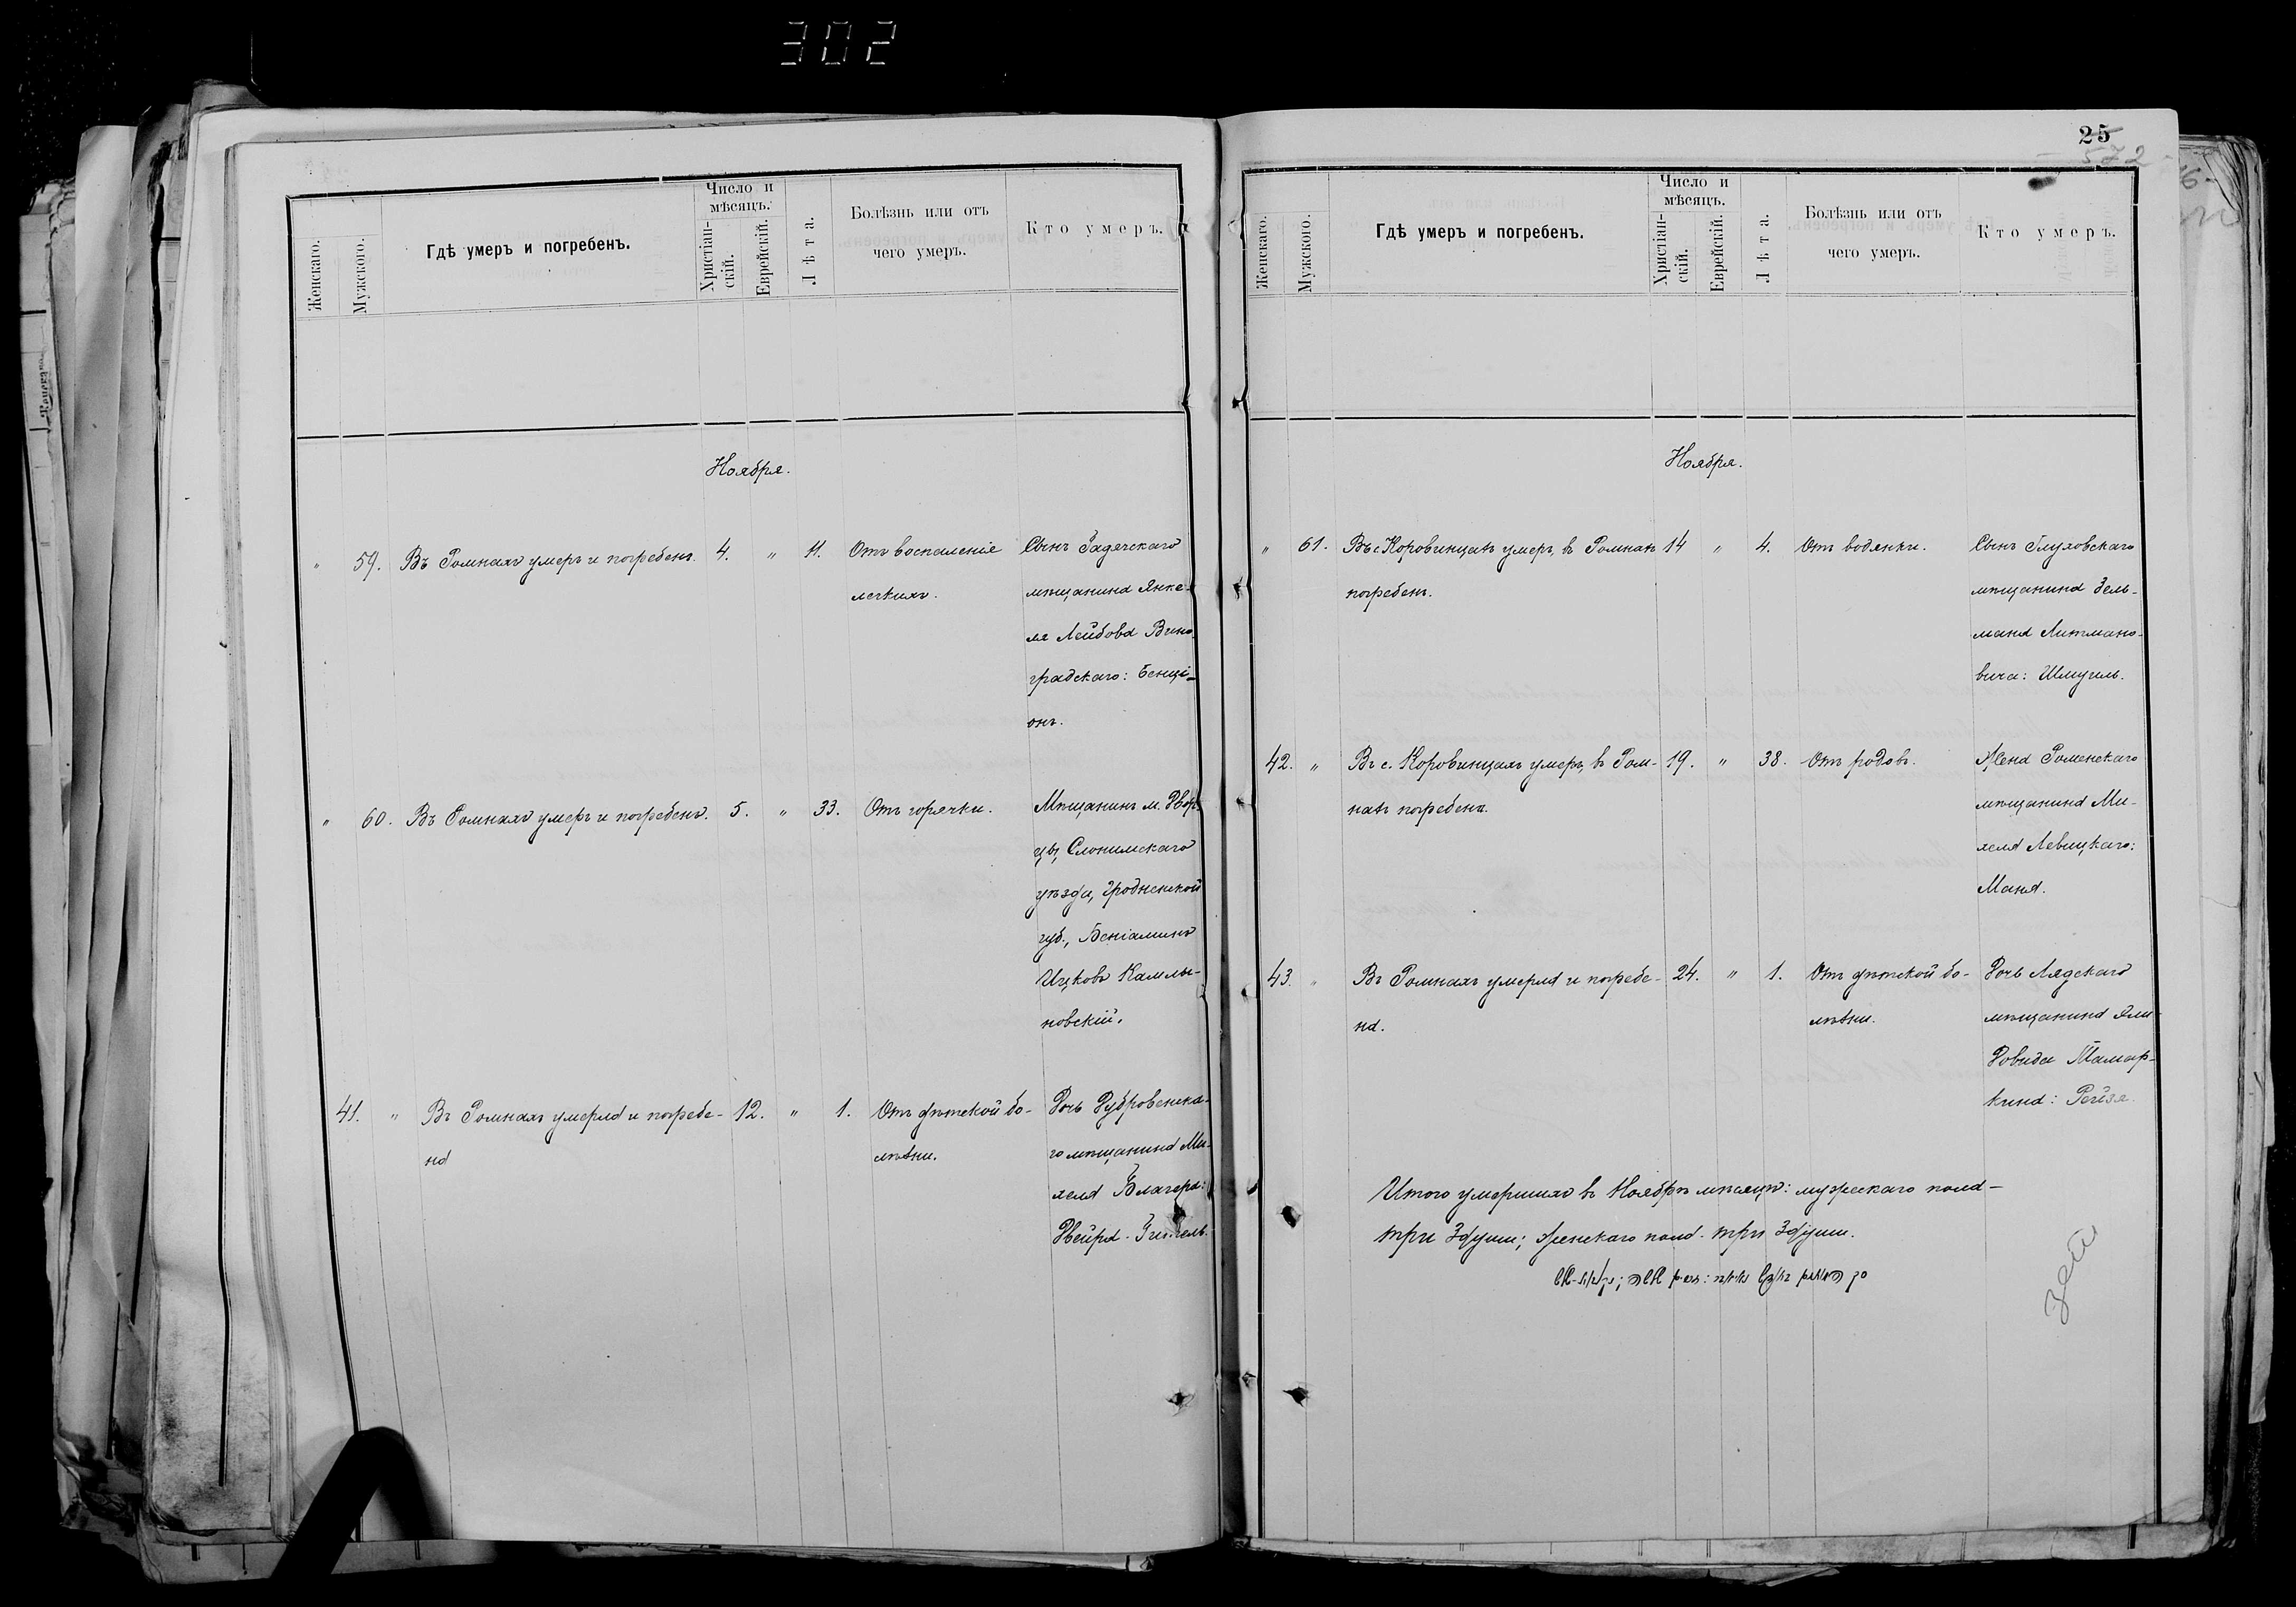 302
Женскаго.
Мужского.
Гдѣ умеръ и погребенъ.
Число и
мѣсяцъ.
Христіан-
скій.
Еврейскій.
Лѣта.
Болѣзнь или отъ
чего умеръ.
Кто умеръ.
Ноября.
" 59. Въ Ромнахъ умеръ и погребенъ. 4. " 11. Отъ воспаленіе Сынъ Гадячскаго
легкихъ. мѣщанина Янке-
ля Лейбова Вино-
градскаго: Бенці-
онъ.
" 60. Въ Ромнахъ умеръ и погребенъ. 5. " 33. Отъ горячки. Мѣщанинъ м. Двор-
цы, Слонимскаго
уѣзда, Гродненской
губ., Беніаминъ
Ицковъ
новскій.
41. " Въ Ромнахъ умерла и погребе- 12. " 1. Отъ дѣтской бо- Дочь Дубровенска-
на лѣзни. го мѣщанина Ми-
хеля
Двейра-
25
572
Женскаго.
Мужского.
Гдѣ умеръ и погребенъ.
Число и
мѣсяцъ.
Христіан-
скій.
Еврейскій.
Лѣта.
Болѣзнь или отъ
чего умеръ.
Кто умеръ.
Ноября.
" 61. Въ с. Коровинцахъ умеръ, въ Ромнахъ 14 " 4. Отъ водянки. Сынъ Глуховскаго
погребенъ. мѣщанина Зель-
мана Литмано-
вича: Шмуиль.
42. " Въ с. Коровинцахъ умеръ, въ Ром- 19. " 38. Отъ родовъ. Жена Роменскаго
нахъ погребена. мѣщанина Ми-
хеля Левицкаго:
Маня.
43. " Въ Ромнахъ умерла и погребе- 24. " 1. Отъ дѣтской бо- Дочь Лядскаго
на. лѣзни. мѣщанина
Довида Тамар-
кина: Рейза.
Итого умершихъ въ Ноябрѣ мѣсяцѣ: мужескаго пола-
три 3 души; женскаго пола- три 3 души.